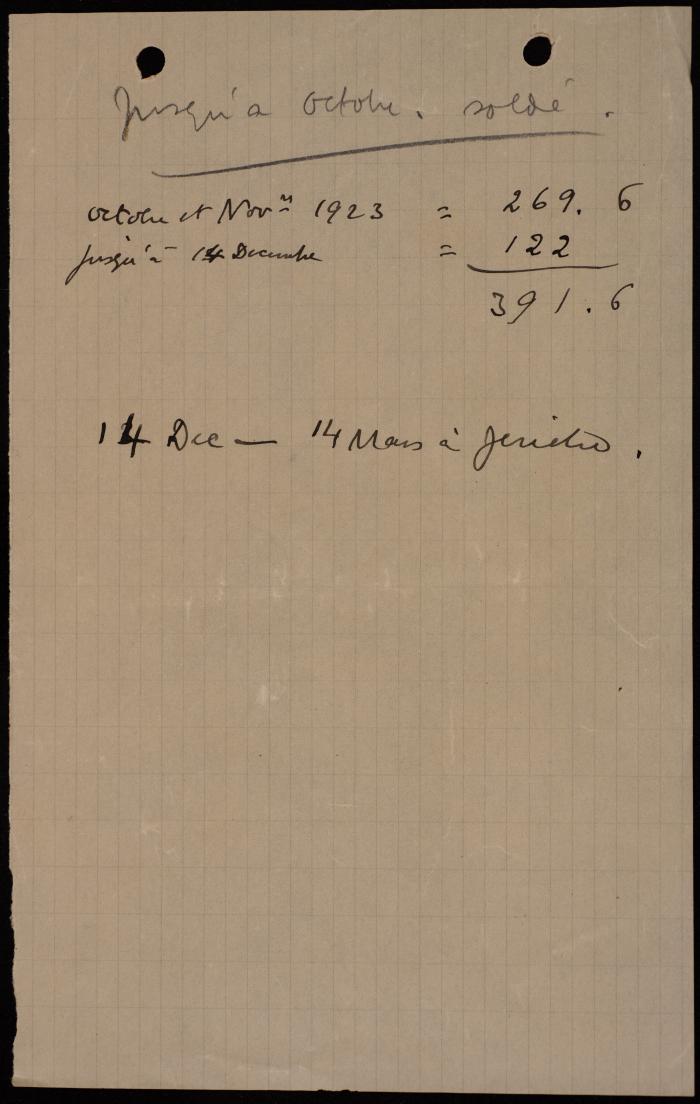 Jusqu'à octobre. soldé.
octobre et Nov.re 1923 = 269. 6
Jusqu'à 14 Decembre = 122
391.6
14 Dec — 14 Mars à Jericho.